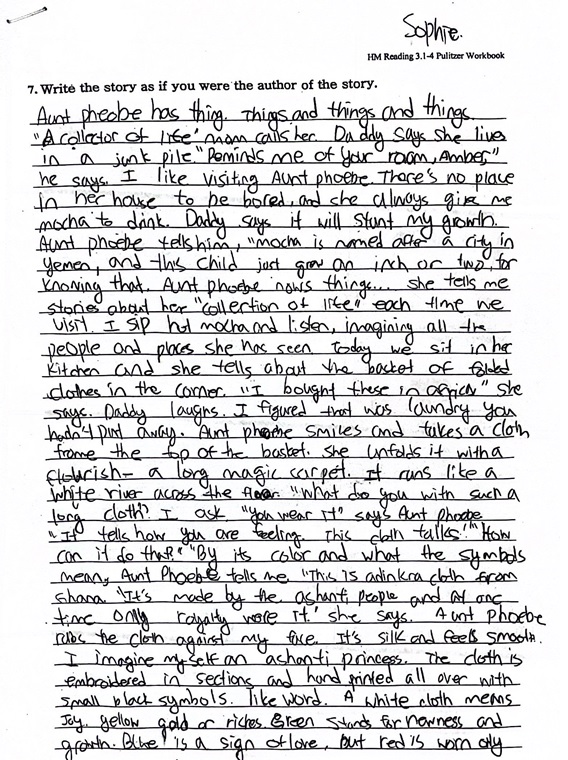 Sophie.
HM Reading 3.1-4 Pulitzer Workbook
7. Write the story as if you were the author of the story.
Aunt pheobe has thing. Things and things and things.
"A collector of life' mom calls her. Daddy says she lives
in "a junk pile" "Reminds me of your room, Amber,"
he says. I like visiting Aunt phoebe. There's no place
in her house to be bored, and she always give me
mocha to drink. Daddy says it will stunt my growth.
Aunt phoebe tells him, "mocha is named after a city in
Yemen, and this child just grew an inch or two for
knowing that. Aunt phoebe nows things... she tells me
stories about her "collection of life" each time we
visit. I sip hot mocha and listen, imagining all the
people and places she has seen Today we sit in her
kitchen and she tells about the basket of folded
clothes in the corner. "I bought these in africa" she
says. Daddy laughs. I figured that was laundry you
hadn't put away. Aunt phoebe smiles and takes a cloth
frome the top of the basket. she unfolds it with a
flourish- a long magic carpet. It runs like a
white river across the floor. "What do you with such a
long cloth? I ask. "you wear it" says Aunt phoebe
"It tells how you are feeling. This cloth talks!" "How
can it do that?" "By its color and what the symbols
mean, Aunt Phoebe tells me "This is adinkra cloth from
Ghana. "It's made by the ashanti people and at one
time only royalty wore it.' she says. Aunt phoebe
rubs the cloth against my face. It's silk and feels smooth.
I imagine myself an ashanti princess. The cloth is
embroidered in sections and hand printed all over with
small black symbols. like word. A white cloth means
Joy. yellow gold or riches. Green stands for newness and
growth. Blue is a sign of love, but red is worn only